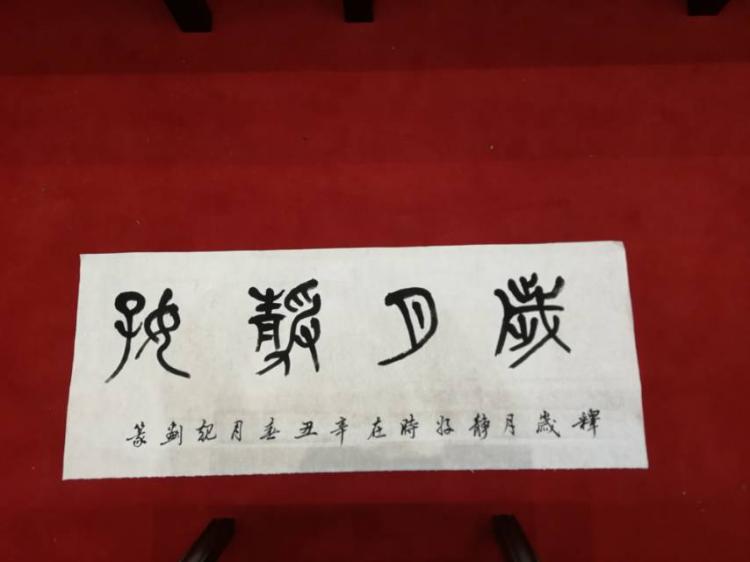 歲月靜好
釋歲月靜好時在辛丑春月紀劍篆